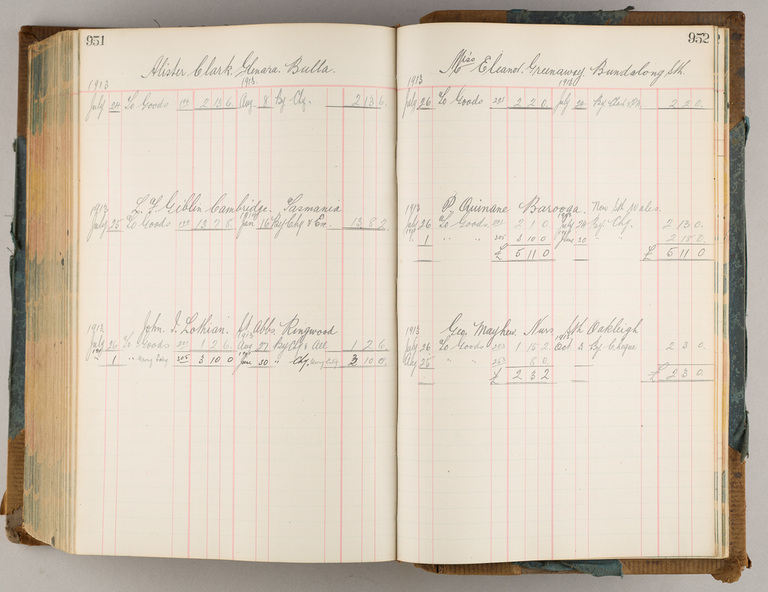 951
Alister Clark. Glenara. Bulla.
1913 1913
July 24 To Goods 2 13 6 Aug. 8 By Chq. 2 13 6
1913 L. F. Giblin Cambridge. Tasmania
July 25 To Goods 13 7 8 Jan 16 By Chq & Ex. 13 8 2
1913 John. I. Lothian. St Abbs Ringwood
July 26 To Goods 1 2 6 Aug 27 By Chq 1 2 6
" 1 " " 205 3 10 0 June 30 " Chq 3 10 0
952
Miss Eleanor Greenaway Bundalong Sth
1913 1913
July 26 To Goods 2 2 0 July 24 By 2 2 0
1913 P. Quinane Barooga. New Sth Wales.
July 26 To Goods 2 1 0 July 24 By Chq. 2 13 0
" 1 " " 205 3 10 0 June 30 " " 2 18 0
£ 5 11 0 £ 5 11 0
1913 Geo. Mayhew Nurs Sth Oakleigh 1913
July 26 To Goods 1 15 2 Oct 3 By Cheque 2 3 0
Aug 25 " " 8 0
£ 2 3 2 £ 2 3 0